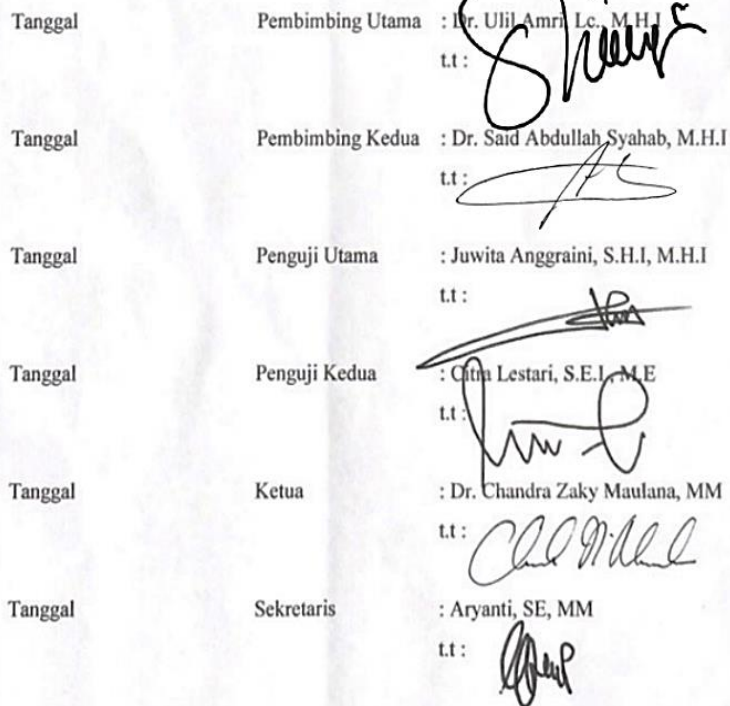 Tanggal Pembimbing Utama : Dr. Ulil Amri, Lc., M.H.I
t.t :
Tanggal Pembimbing Kedua : Dr. Said Abdullah Syahab, M.H.I
t.t :
Tanggal Penguji Utama : Juwita Anggraini, S.H.I, M.H.I
t.t :
Tanggal Penguji Kedua : Citra Lestari, S.E.I., M.E
t.t :
Tanggal Ketua : Dr. Chandra Zaky Maulana, MM
t.t :
Tanggal Sekretaris : Aryanti, SE, MM
t.t :